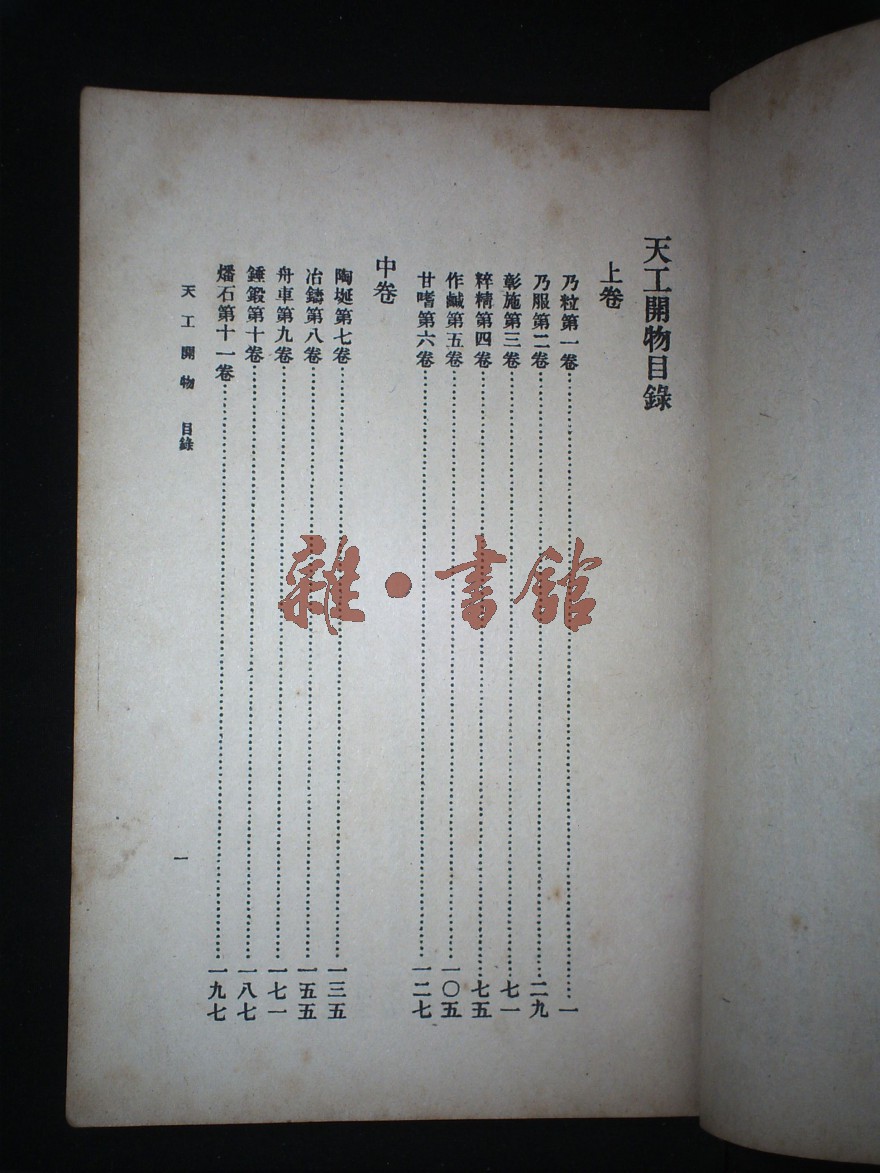 天工開物目錄
上卷
乃粒第一卷……一
乃服第二卷……二九
彰施第三卷……七一
粹精第四卷……七五
作鹹第五卷……一〇五
甘嗜第六卷……一二七
中卷
陶埏第七卷……一三五
冶鑄第八卷……一五五
舟車第九卷……一七一
錘鍛第十卷……一八七
燔石第十一卷……一九七
天工開物 目錄
一
雜·書館